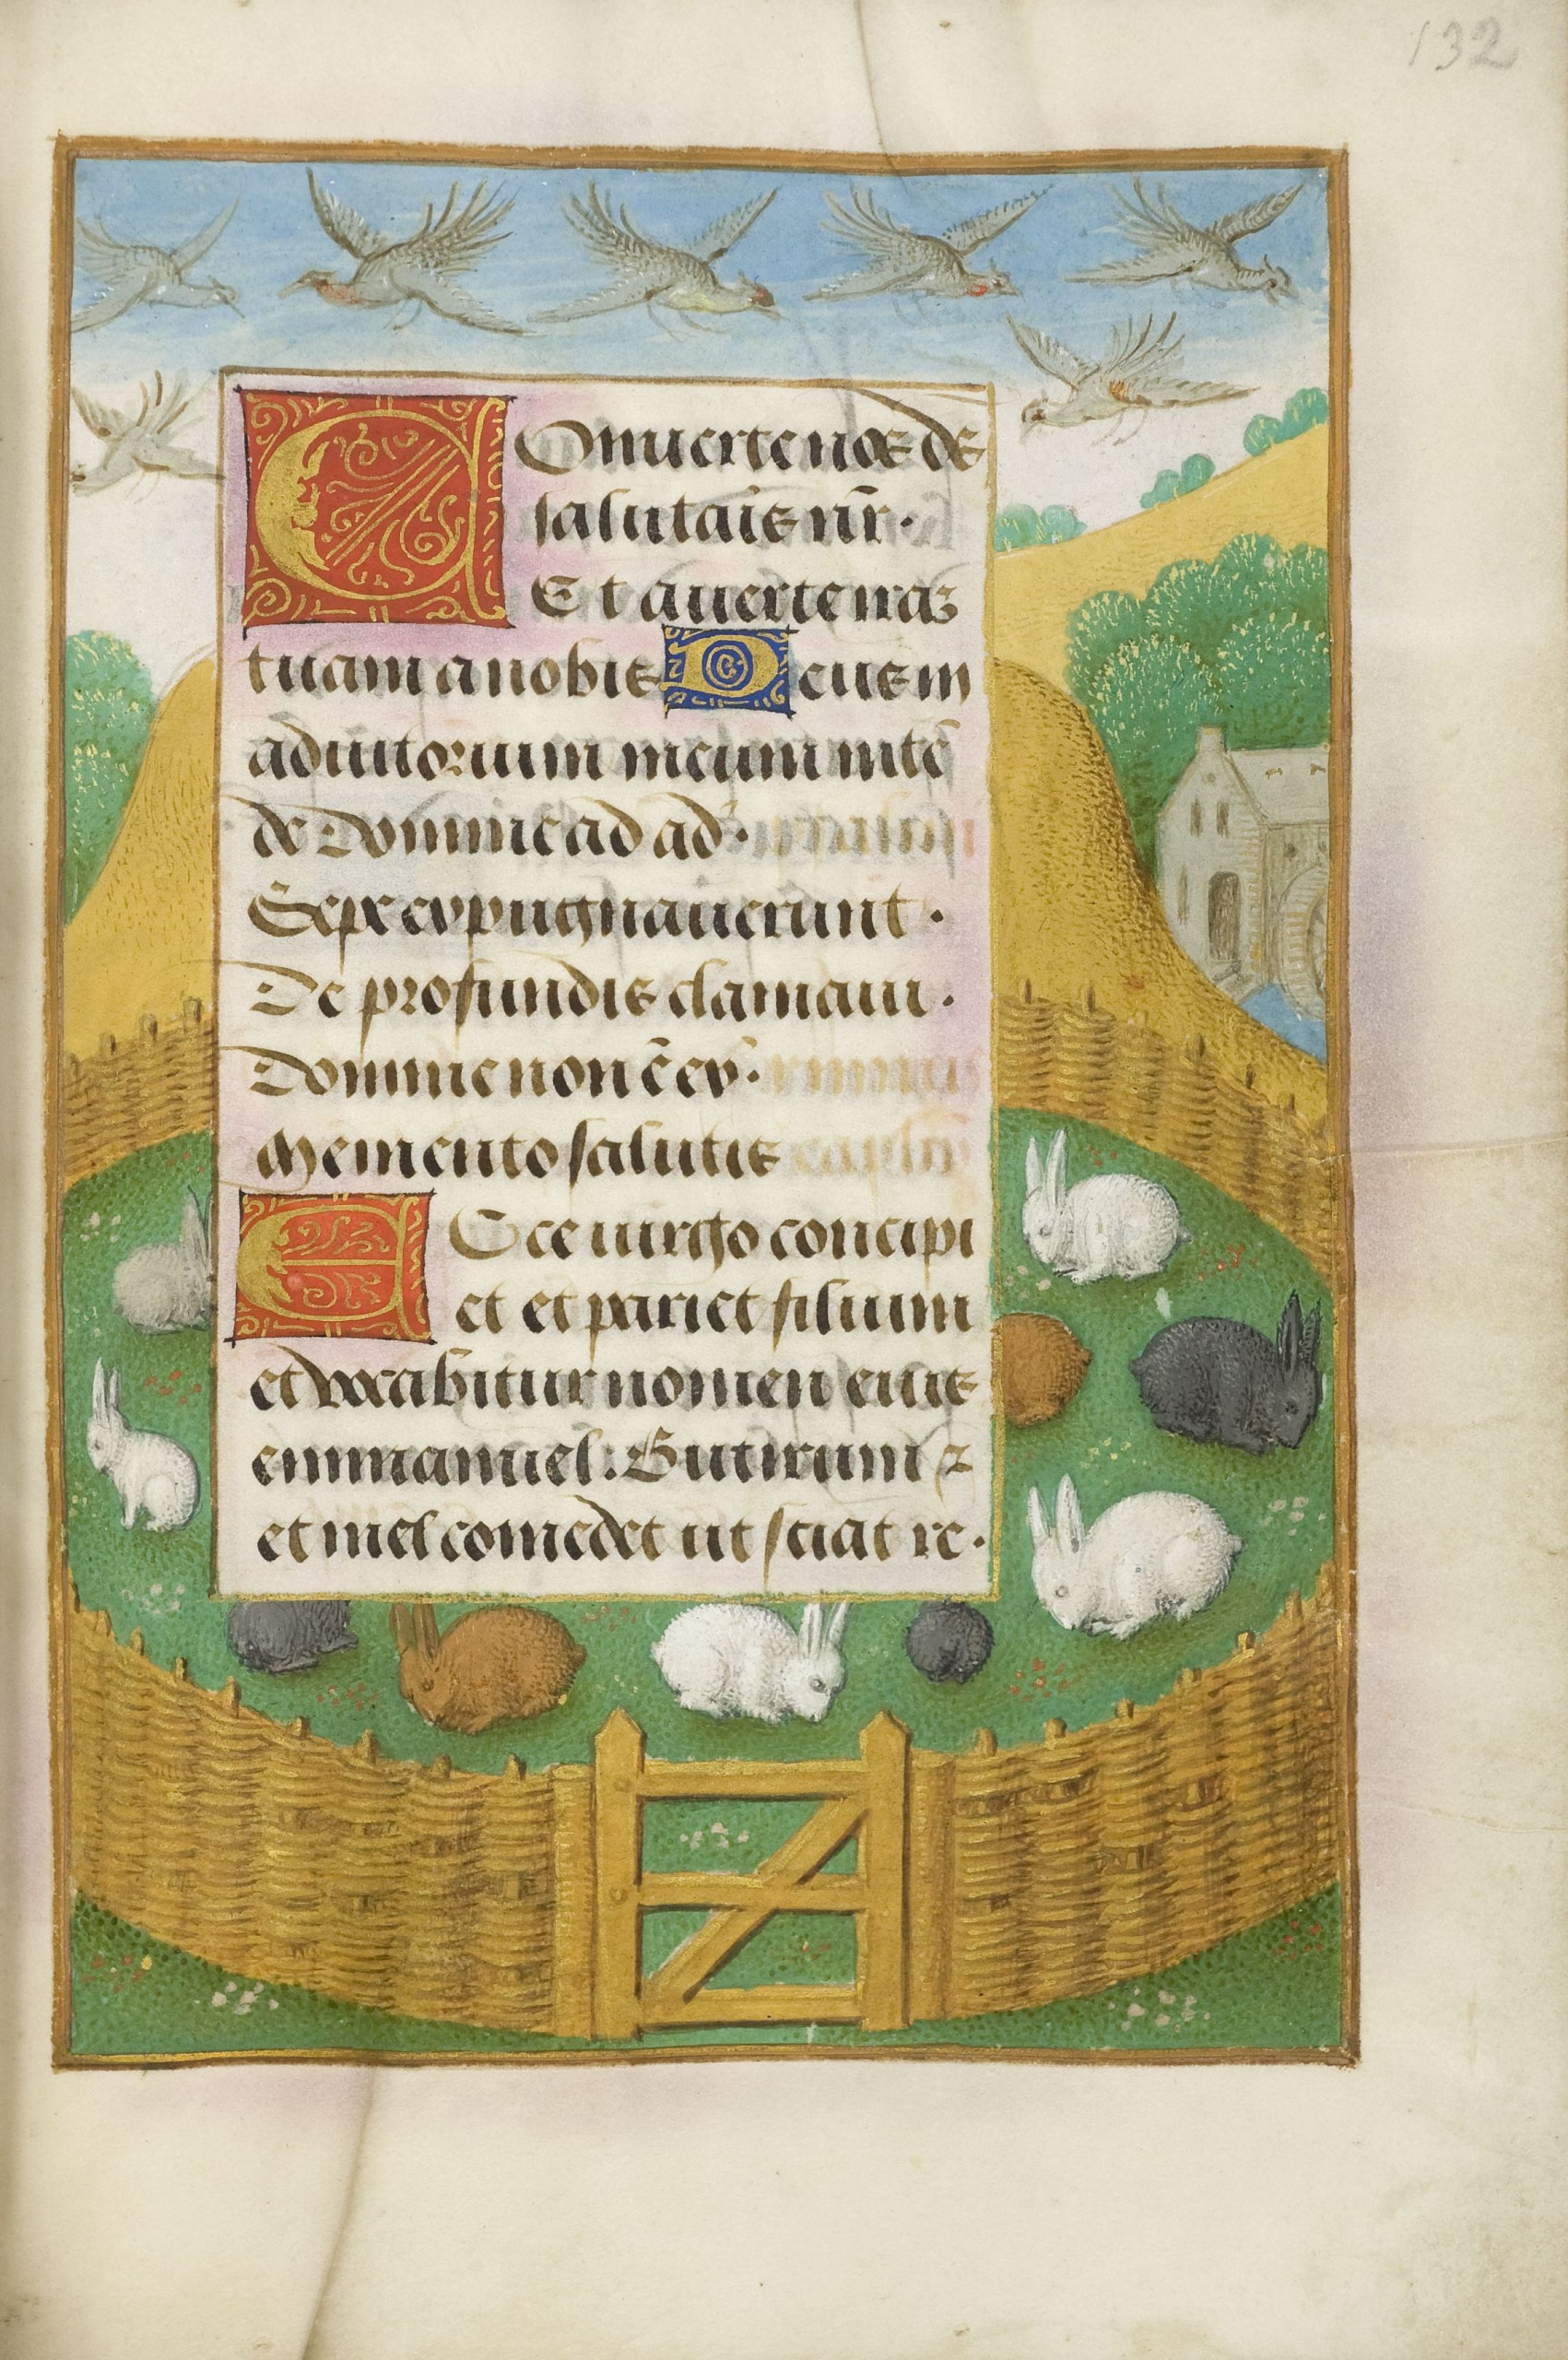 132
Conuerte nos de
salutais nr̄.
Et auerte iraz
tuam a nobis Deus in
adiutorium meum inte
de Domine ad ad.
Sepe expugnauerunt.
De profundis clamaui.
Domine non ē ex.
Memento salutis
Ecce uirgo concipi
et et pariet filium
et vocabitur nomen eius
emmanuel: Butirum ⁊
et mel comedet ut sciat re.